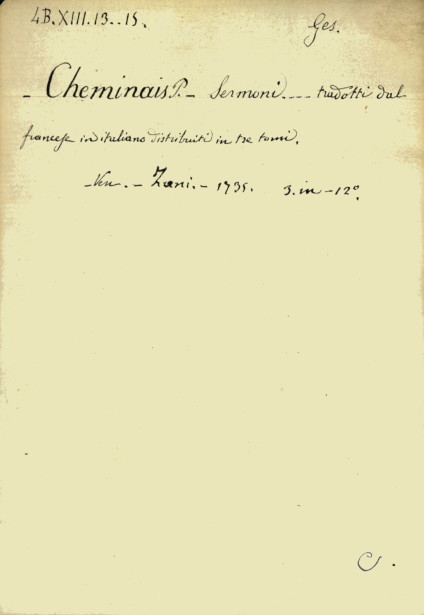 4B.XIII.13..15.
Ges.
- Cheminais P. - Sermoni .... tradotti dal
francese in italiano distribuiti in tre tomi.
- Ven. - Zani. - 1735. 3. in - 12º.
C.